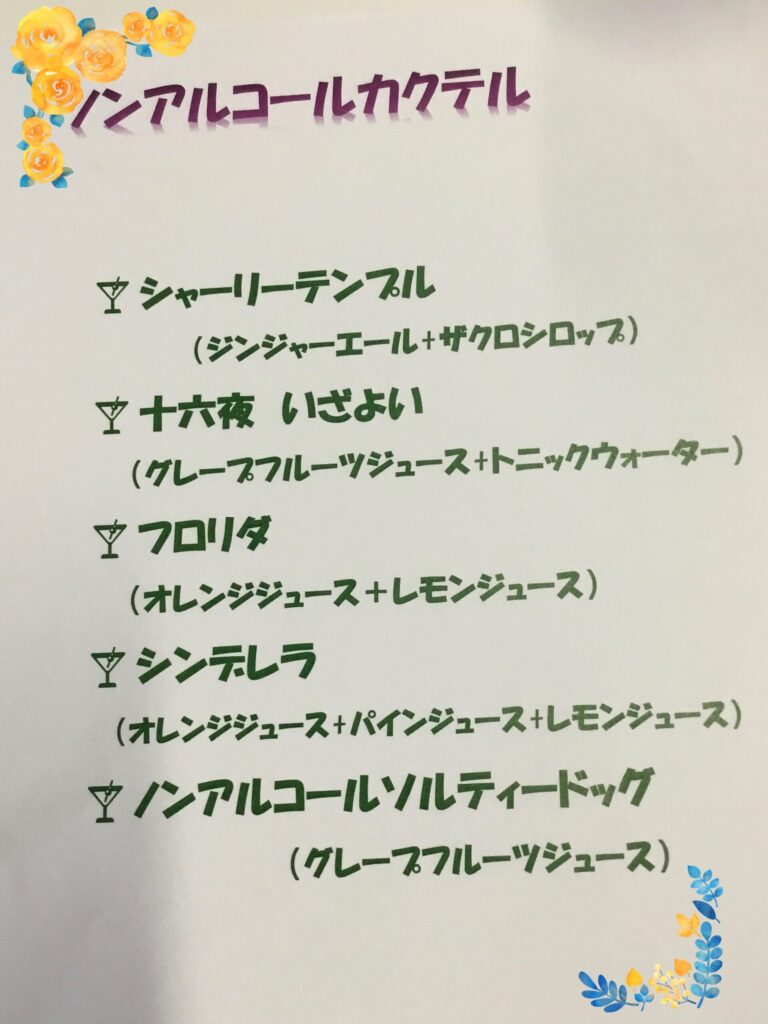 ノンアルコールカクテル
シャーリーテンプル
(ジンジャーエール+ザクロシロップ)
十六夜　いざよい
(グレープフルーツジュース+トニックウォーター)
フロリダ
(オレンジジュース＋レモンジュース)
シンデレラ
(オレンジジュース+パインジュース+レモンジュース)
ノンアルコールソルティードッグ
(グレープフルーツジュース)